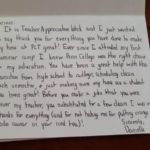 It is Teacher Appreciation Week and I just wanted
to say thank you for everything you have done to make
my time at PCT great! Ever since I attended my first
summer camp I knew Penn College was the right choice
for my education. You have been a great help with the
transition from high school to college, scheduling classes
each semester, & just making sure my time as a student
has been great! Before you make a joke that you were
never my teacher, you substituted for a few classes I was in.
Thanks for everything (and for not telling me for putting orange
soda in your card too)!
Sincerely,
Danielle